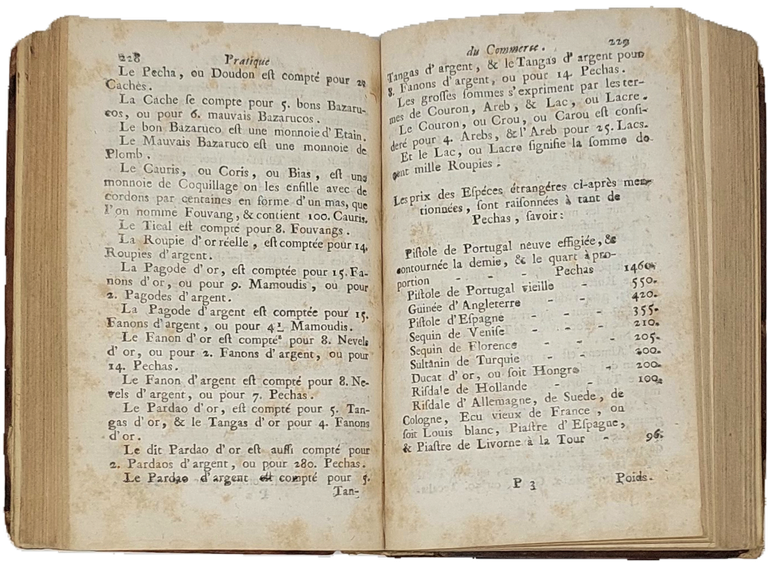 228 Pratique
Le Pecha, ou Doudon est compté pour 28
Cachés.
La Cache se compte pour 5. bons Bazaru-
cos, ou pour 6. mauvais Bazarucos.
Le bon Bazaruco est une monnoie d'Etain.
Le Mauvais Bazaruco est une monnoie de
Plomb.
Le Cauris, ou Coris, ou Bias, est une
monnoie de Coquillage on les enfille avec de
cordons par centaines en forme d'un mas, que
l'on nomme Fouvang, & contient 100. Cauris.
Le Tical est compté pour 8. Fouvangs.
La Roupie d'or réelle, est comptée pour 14.
Roupies d'argent.
La Pagode d'or, est comptée pour 15. Fa-
nons d'or, ou pour 9. Mamoudis, ou pour
2. Pagodes d'argent.
La Pagode d'argent est comptée pour 15.
Fanons d'argent, ou pour 4½ Mamoudis.
Le Fanon d'or est compté pour 8. Nevels
d'or, ou pour 2. Fanons d'argent, ou pour
14. Pechas.
Le Fanon d'argent est compté pour 8. Ne-
vels d'argent, ou pour 7. Pechas.
Le Pardao d'or, est compté pour 5. Tan-
gas d'or, & le Tangas d'or pour 4. Fanons
d'or.
Le dit Pardao d'or est aussi compté pour
2. Pardaos d'argent, ou pour 280. Pechas.
Le Pardao d'argent est compté pour 5.
Tan-
du Commerce. 229
Tangas d'argent, & le Tangas d'argent pour
8. Fanons d'argent, ou pour 14. Pechas.
Les grosses sommes s'expriment par les ter-
mes de Couron, Areb, & Lac, ou Lacre.
Le Couron, ou Crou, ou Carou est consi-
deré pour 4. Arebs, & l'Areb pour 25. Lacs.
Et le Lac, ou Lacre signifie la somme de
cent mille Roupies.
Les prix des Espéces étrangéres ci-après men-
tionnées, sont raisonnées à tant de
Pechas, savoir:
Pistole de Portugal neuve effigiée, &
contournée la demie, & le quart à pro-
portion - - - Pechas 1460.
Pistole de Portugal vieille - 550.
Guinée d'Angleterre - - 420.
Pistole d'Espagne - - - 355.
Sequin de Venise - - - 210.
Sequin de Florence - - 205.
Sultanin de Turquie - - 200.
Ducat d'or, ou soit Hongre - 200.
Risdale de Hollande - - 100.
Risdale d'Allemagne, de Suede, de
Cologne, Ecu vieux de France, ou
soit Louis blanc, Piastre d'Espagne,
& Piastre de Livorne à la Tour - 96.
P 3 Poids.